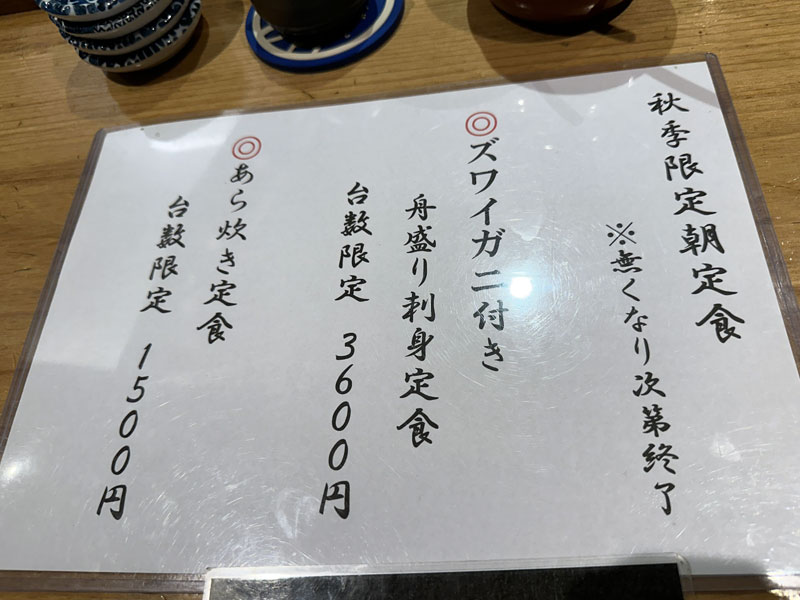 秋季限定朝定食
※無くなり次第終了
◎ズワイガニ付き
舟盛り刺身定食
台数限定 3600円
◎あら炊き定食
台数限定 1500円